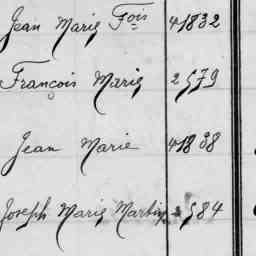 Jean Marie Fois 41832
François Marie 2579
Jean Marie 41838
Joseph Marie Martin 2584